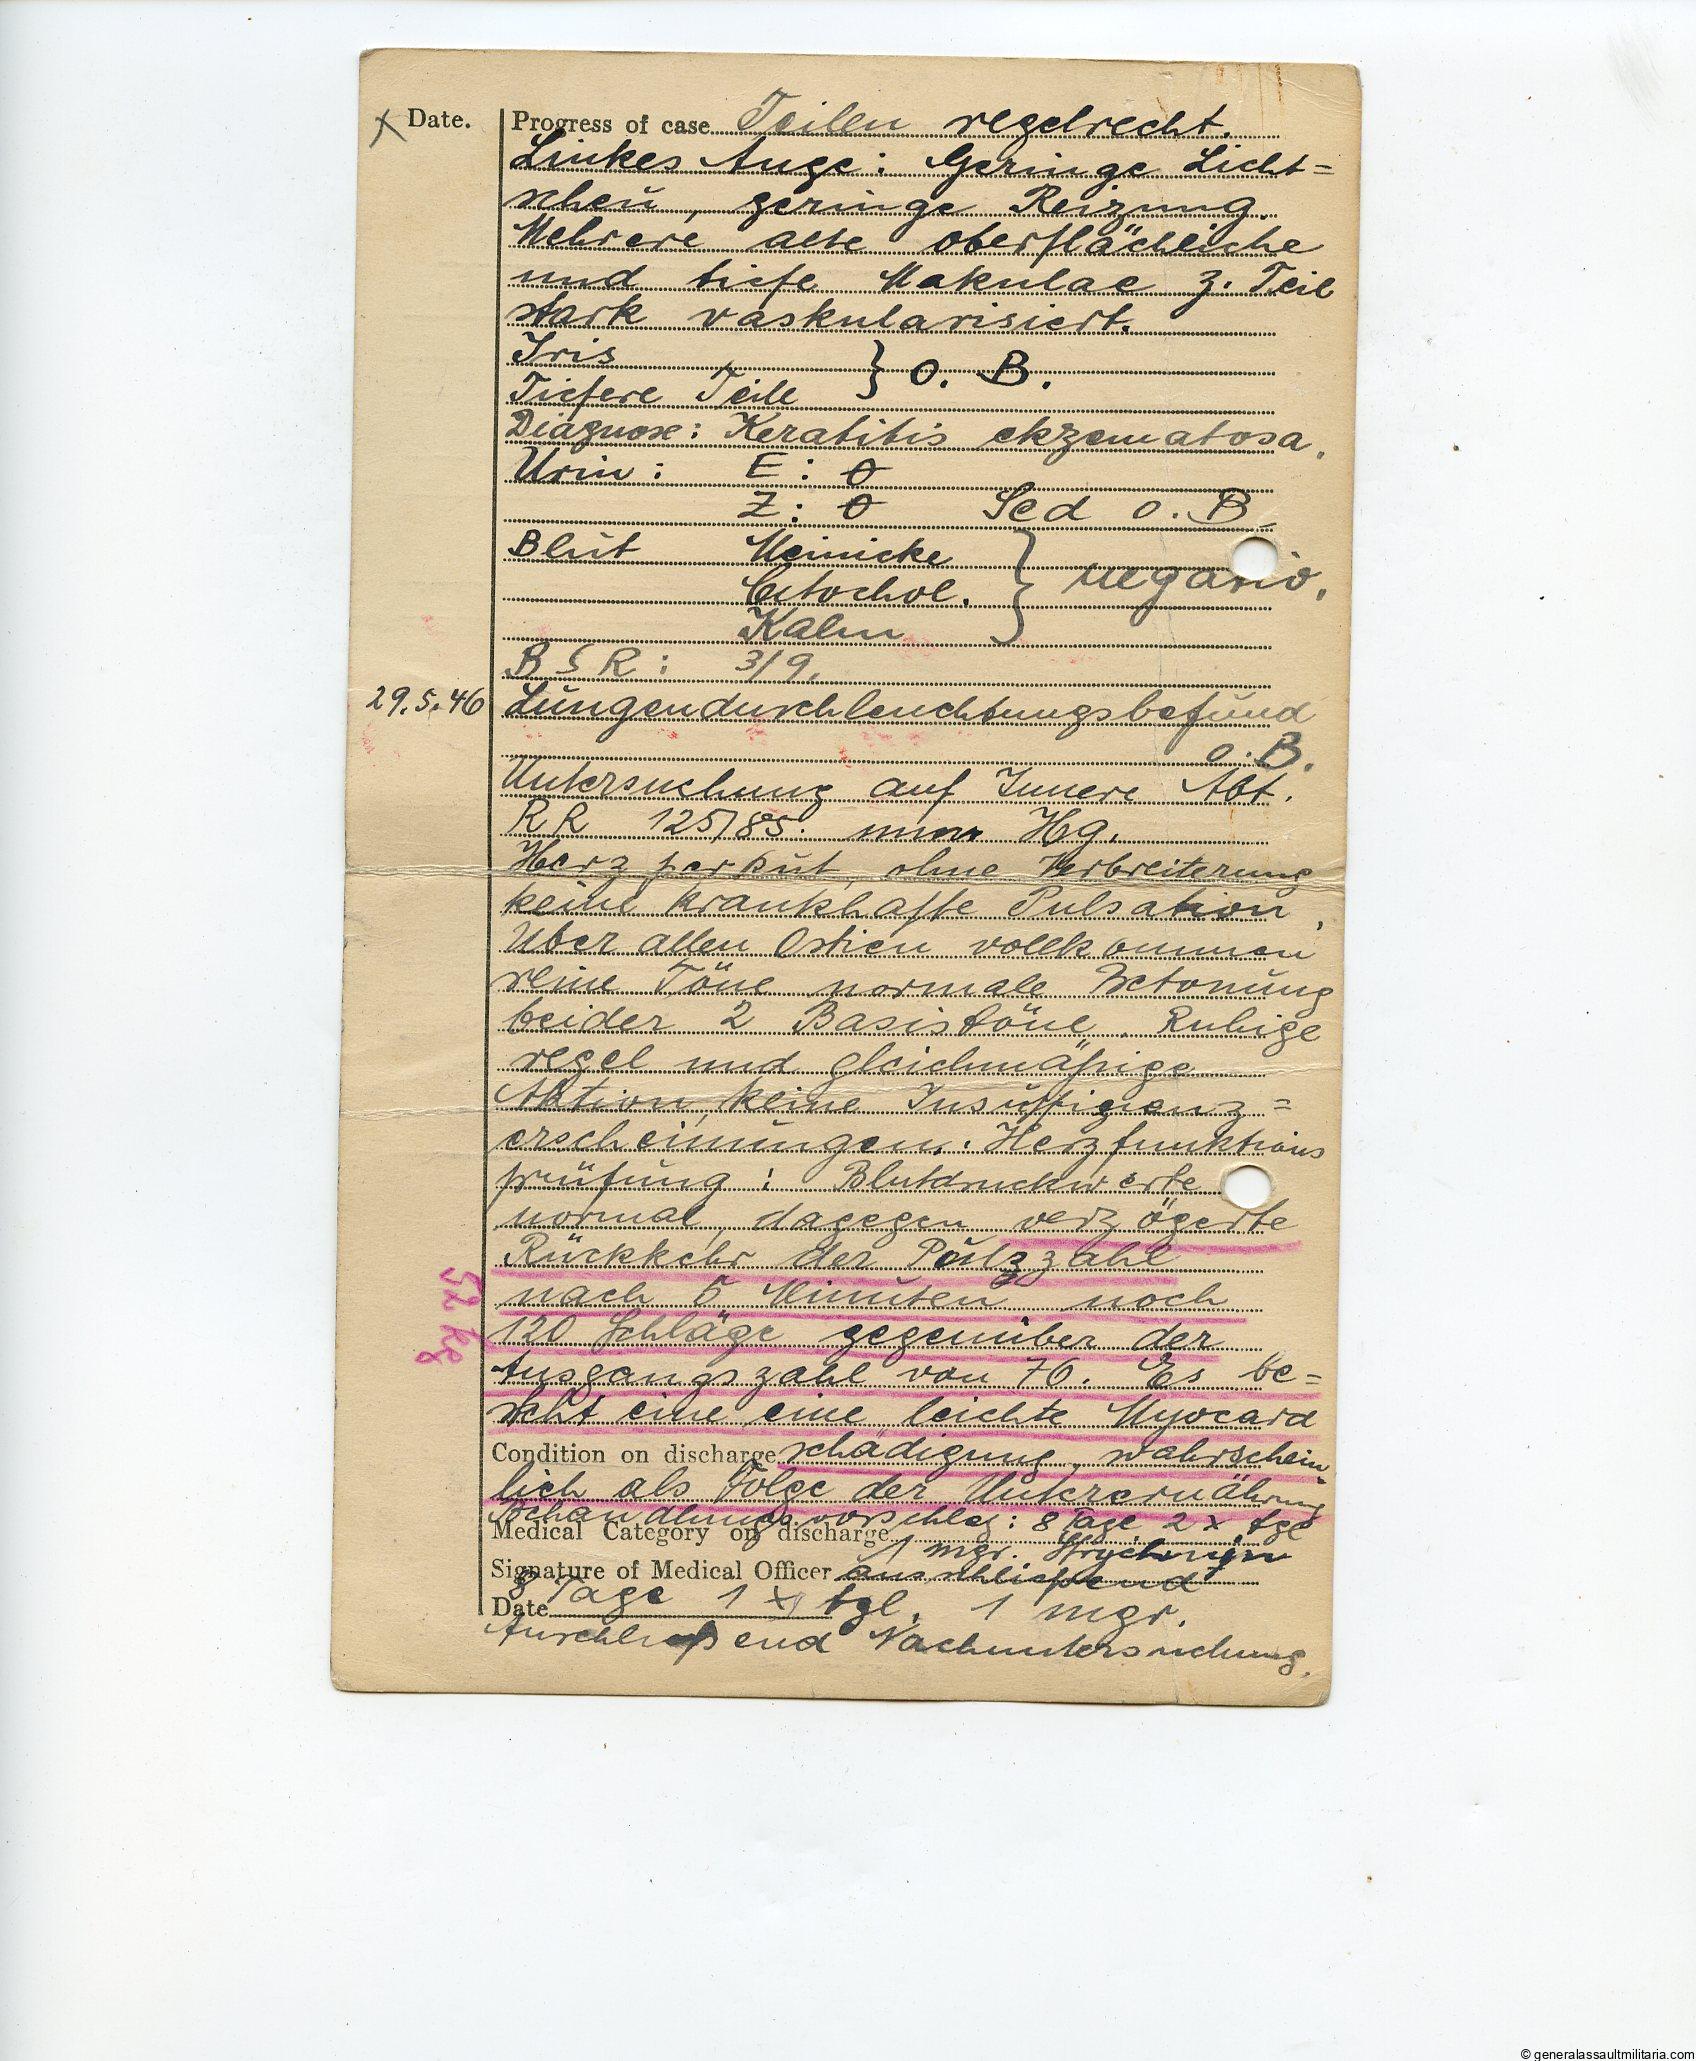 x Date. Progress of case Teilen regelrecht.
Linkes Auge: Geringe Licht=
scheu, geringe Reizung.
Mehrere alte oberflächliche
und tiefe Makulae z. Teil
stark vaskularisiert.
Iris
Tiefere Teile } o. B.
Diagnose: Keratitis ekzematosa.
Urin: E: 0
Z: 0 Sed o. B
Blut Meinicke
Citochol. } negativ.
Kahn
B S R: 3/9.
29.5.46 Lungendurchleuchtungsbefund
o. B.
Untersuchung auf Innere Abt.
RR 125/85. mm Hg.
Herz perkut, ohne Verbreiterung
keine krankhafte Pulsation,
Über allen Ostien vollkommen
reine Töne normale Betonung
beider 2 Basistöne. Ruhige
regel und gleichmäßige
Aktion, keine Insuffizienz=
erscheinungen. Herzfunktions
prüfung: Blutdruckwerte
normal, dagegen verzögerte
Rückkehr der Pulszahl
nach 5 Minuten noch
52 kg
120 Schläge gegenüber der
Ausgangszahl von 76. Es be=
steht eine eine leichte Myocard
Condition on discharge schädigung, wahrschein
lich als Folge der Unterernährung
Behandlungsvorschlag: 8 Tage 2 x tgl
Medical Category on discharge
1 mgr. Strychnin
Signature of Medical Officer anschließend
8 Tage 1 x tgl. 1 mgr.
Date
Anschließend Nachuntersuchung.
© generalassaultmilitaria.com